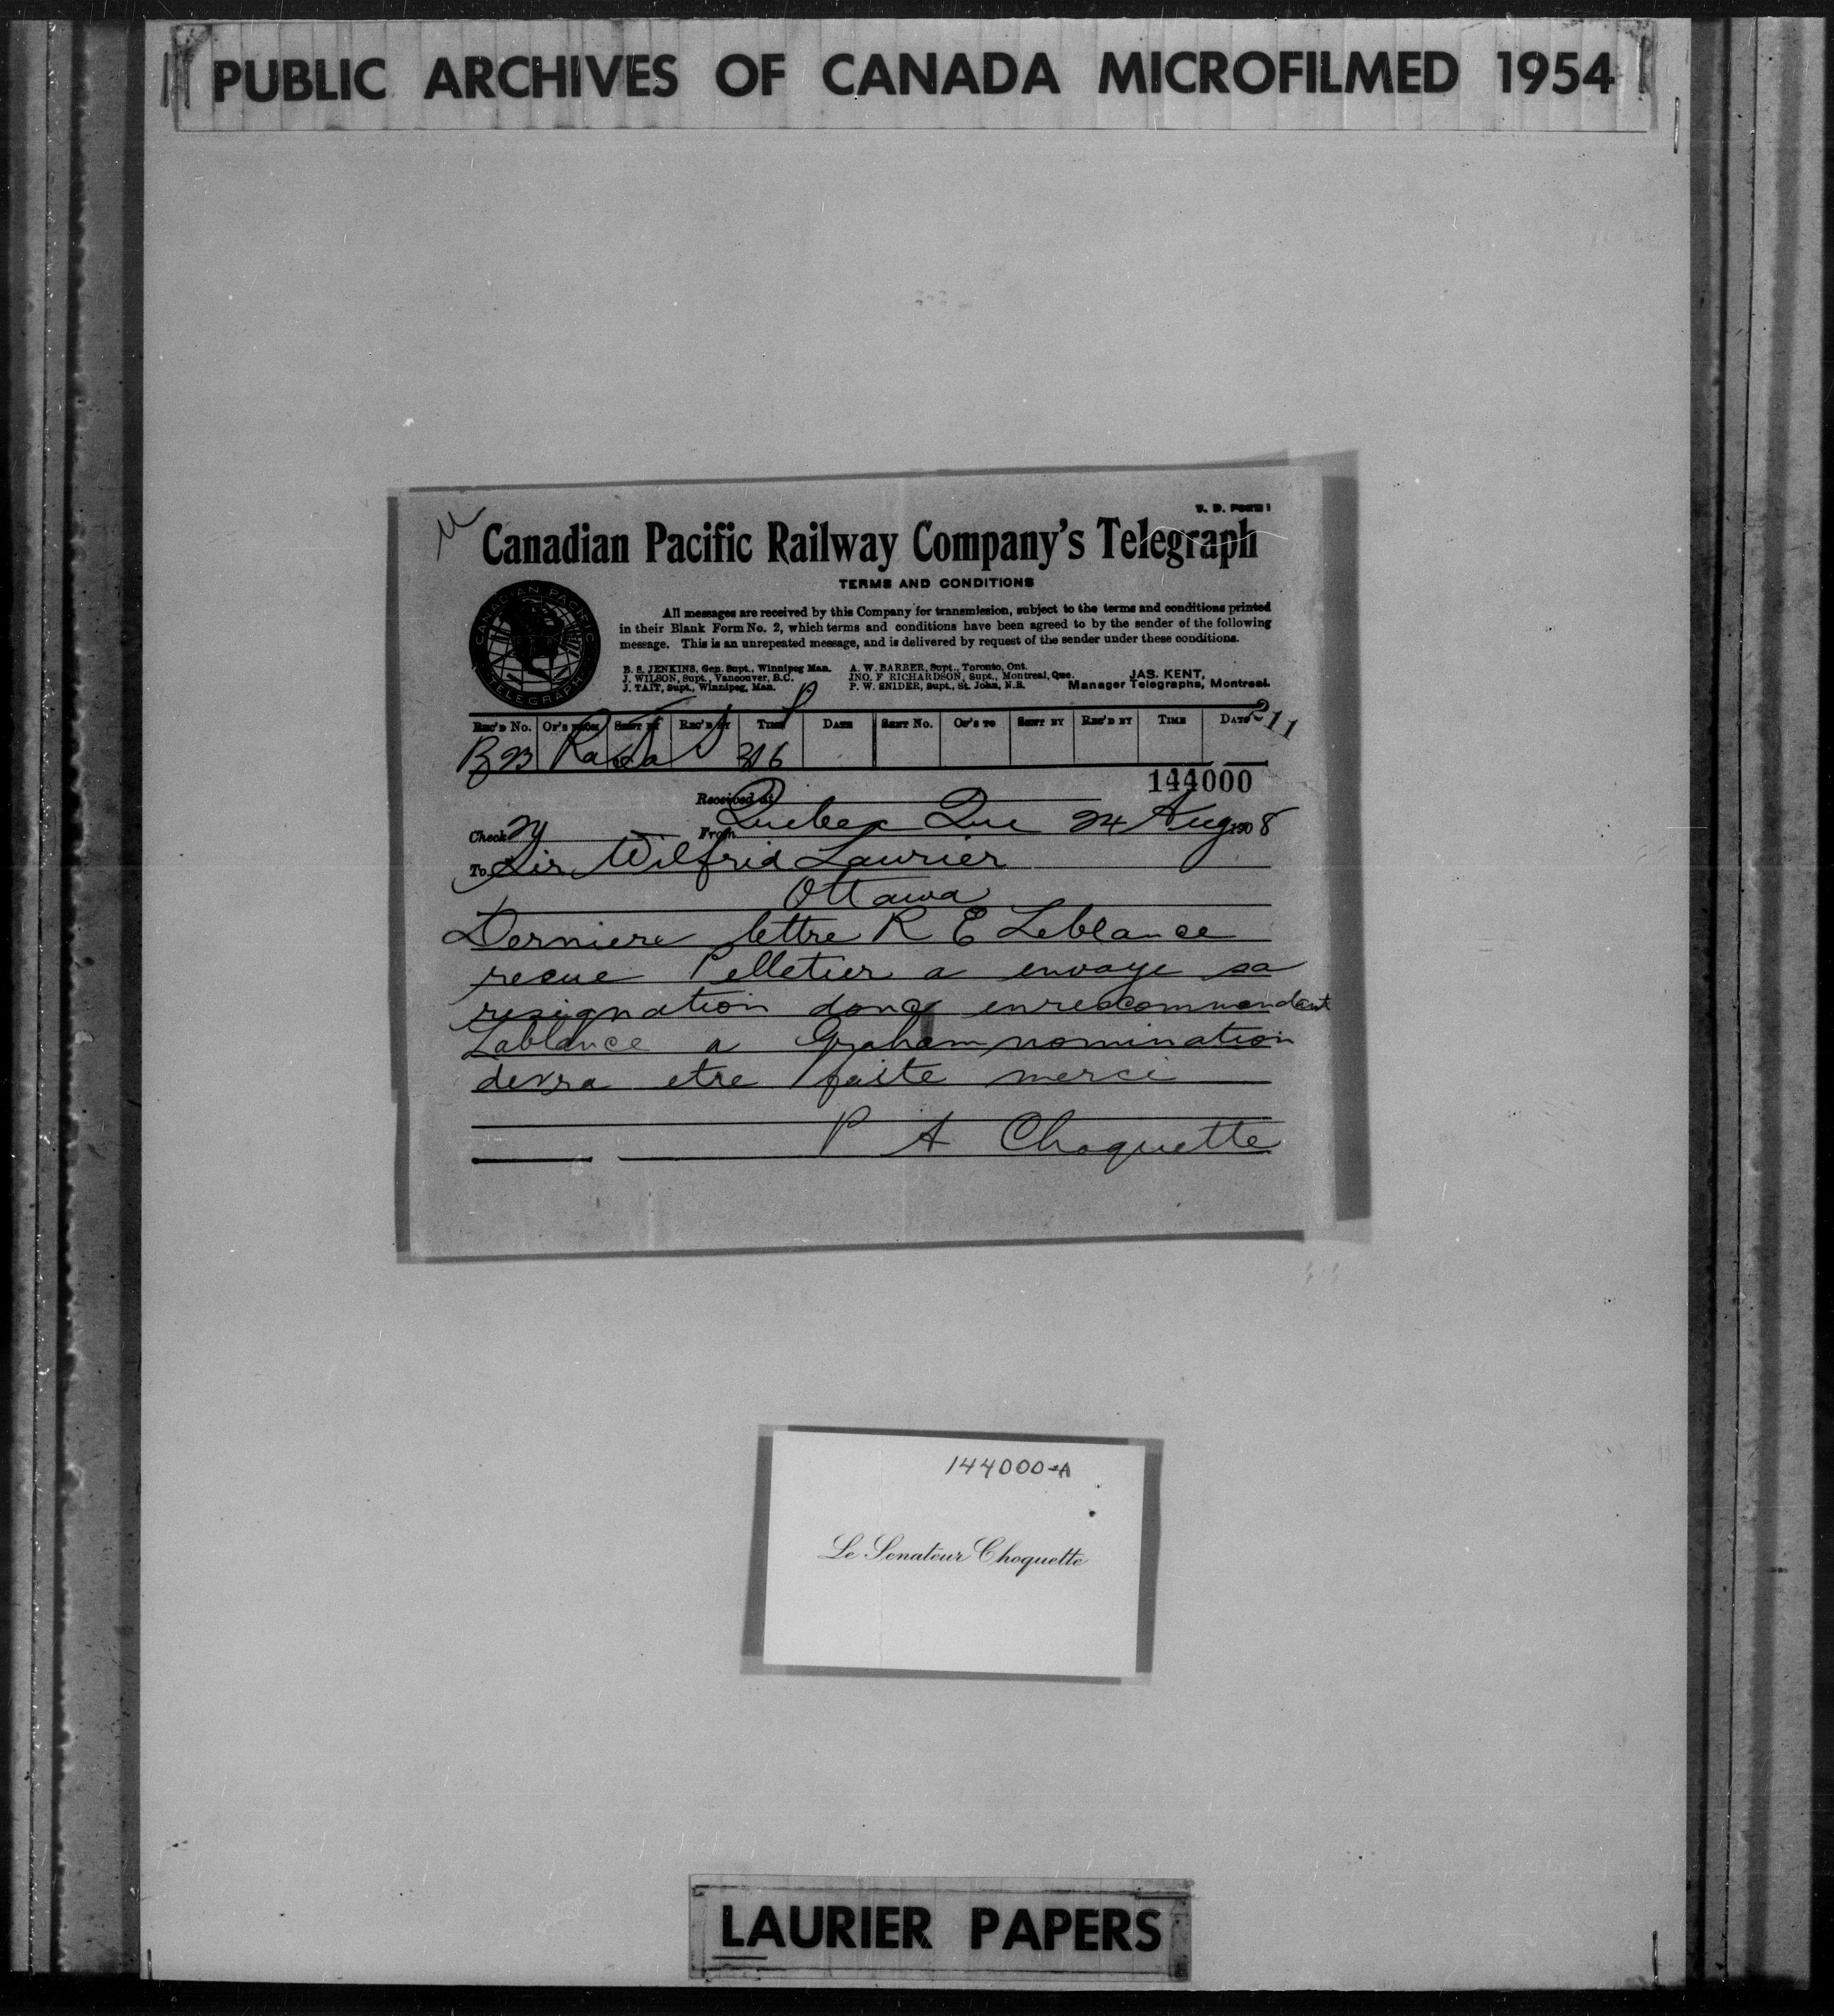 PUBLIC ARCHIVES OF CANADA MICROFILMED 1954
T. D. FORM 1
Canadian Pacific Railway Company's Telegraph
TERMS AND CONDITIONS
All messages are received by this Company for transmission, subject to the terms and conditions printed
in their Blank Form No. 2, which terms and conditions have been agreed to by the sender of the following
message. This is an unrepeated message, and is delivered by request of the sender under these conditions.
B. S. JENKINS, Gen. Supt., Winnipeg Man. A. W. BARBER, Supt., Toronto, Ont.
J. WILSON, Supt., Vancouver, B.C. JNO. F RICHARDSON, Supt., Montreal, Que. JAS. KENT,
J. TAIT, Supt., Winnipeg, Man. P. W. SNIDER, Supt., St. John, N.B. Manager Telegraphs, Montreal.
CANADIAN PACIFIC TELEGRAPH
REC'D No. OF'S FROM SENT BY REC'D BY TIME DATE SENT No. OF'S TO SENT BY REC'D BY TIME DATE 211
B 23 316
144000
Received at
Check From Quebec Que 24 Aug 1908
To Sir Wilfrid Laurier
Ottawa
Derniere lettre R E Leblance
recue Pelletier a envoye sa
resignation donc enrecommendant
Lablance a Graham nomination
devra etre faite merci
P A Choquette
144000-A
Le Senateur Choquette
LAURIER PAPERS